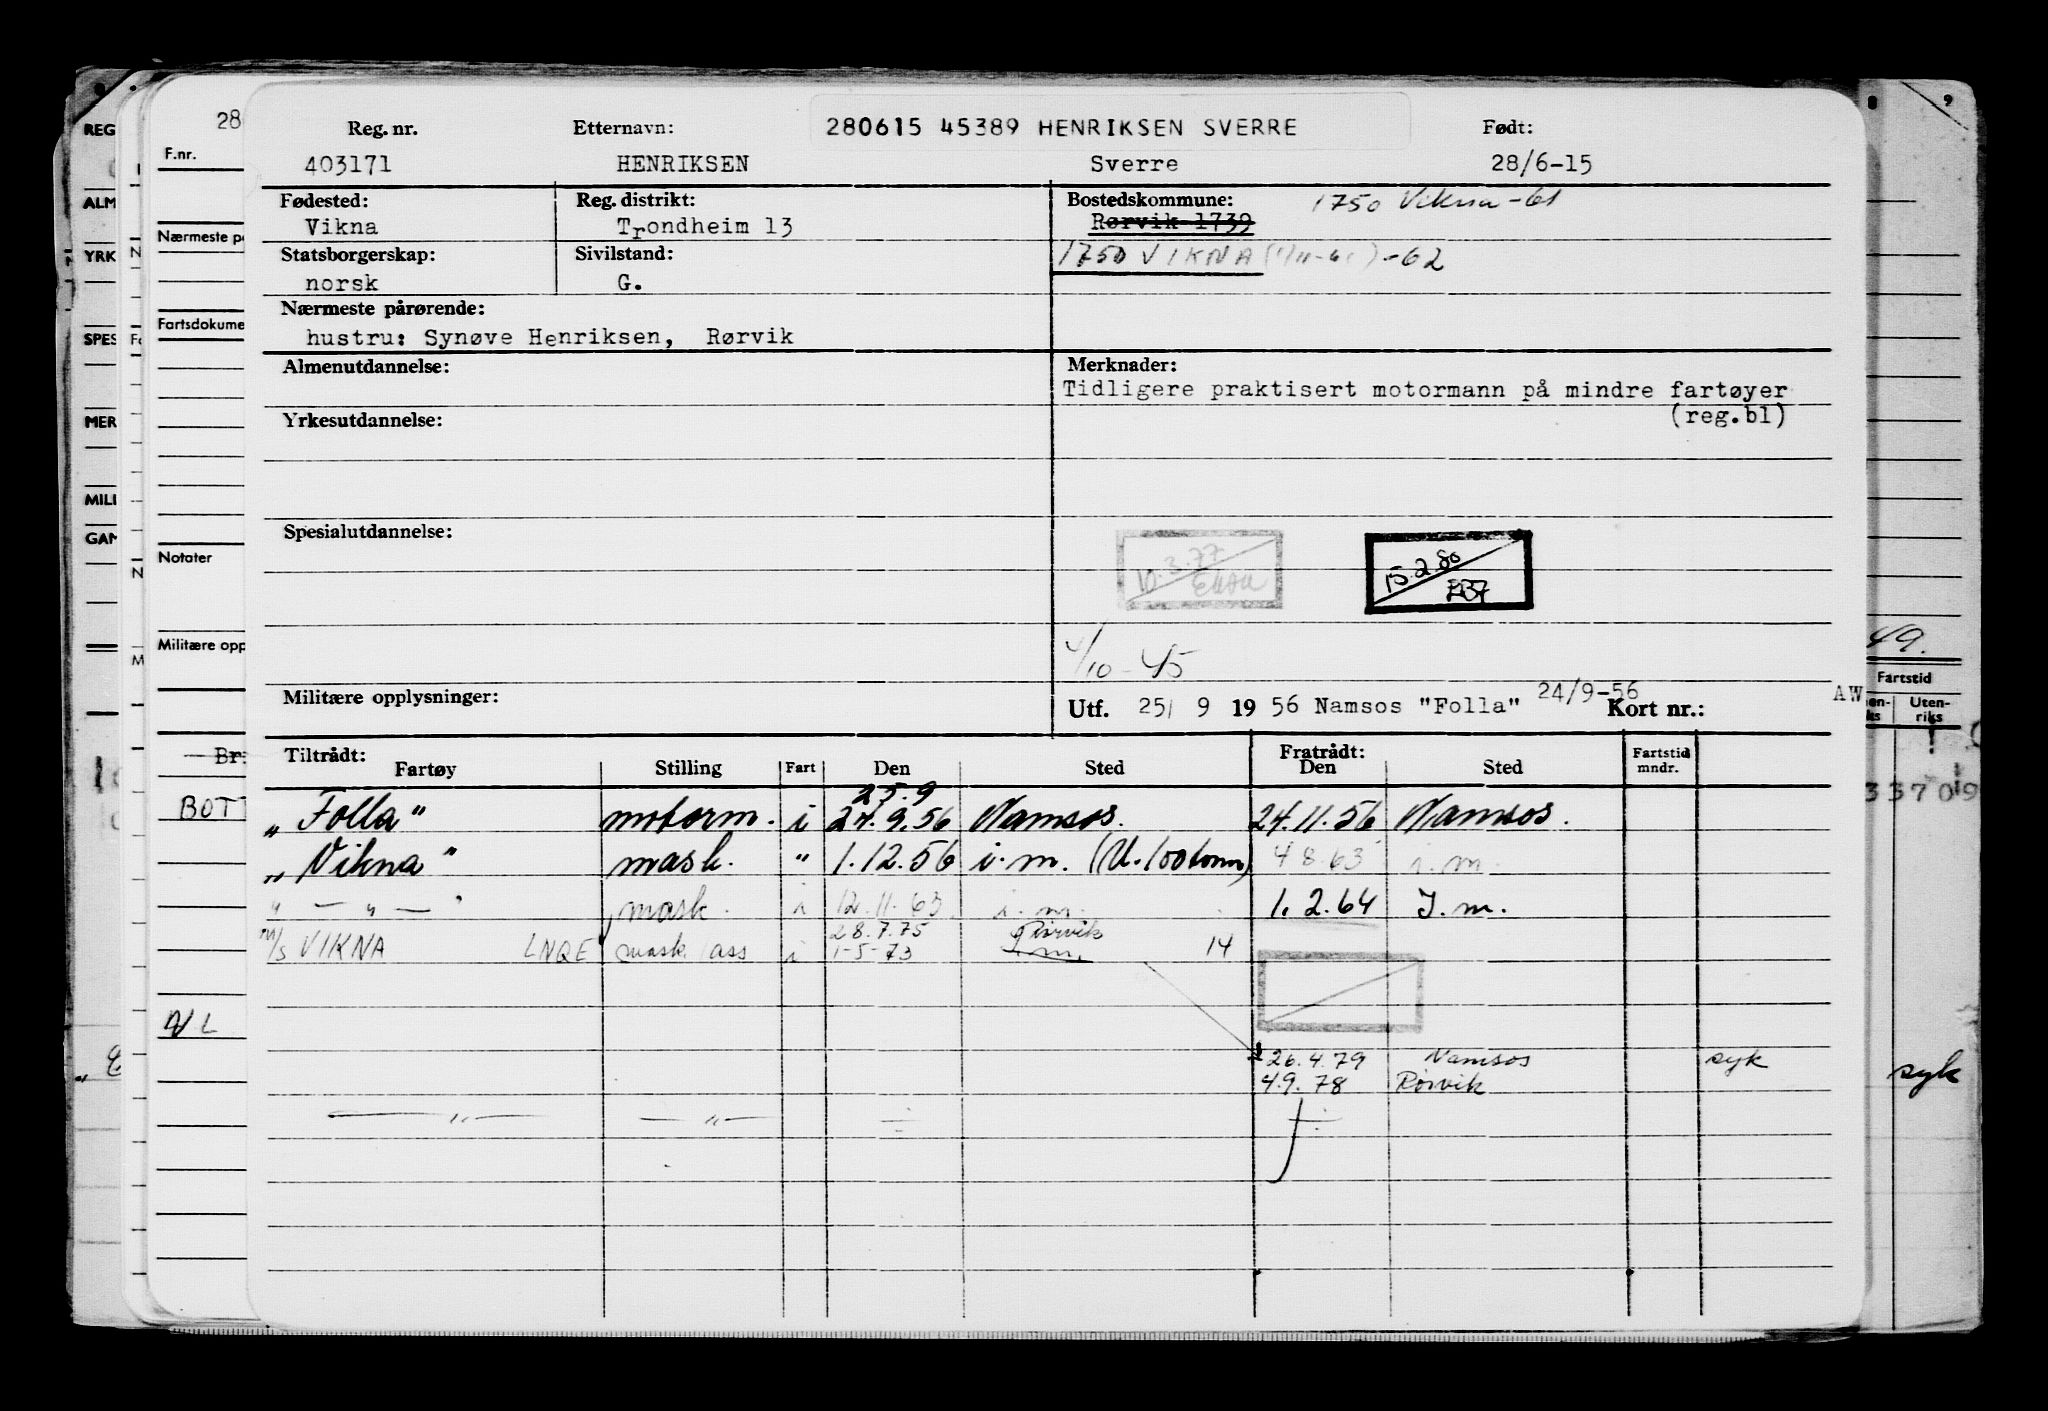 280615 45389 HENRIKSEN SVERRE
Reg. nr. Etternavn: Født:
403171 HENRIKSEN Sverre 28/6-15
Fødested: Reg. distrikt: Bostedskommune: 1750 Vikna -61
Vikna Trondheim 13 Rørvik 1739
Statsborgerskap: Sivilstand: 1750 VIKNA -62
norsk G.
Nærmeste pårørende:
hustru: Synøve Henriksen, Rørvik
Almenutdannelse: Merknader:
Tidligere praktisert motormann på mindre fartøyer
(reg.bl)
Yrkesutdannelse:
Spesialutdannelse:
10.3.77 15.2.80
4/10-45
Militære opplysninger:
Utf. 25/ 9 19 56 Namsos "Folla" 24/9-56 Kort nr.: AW
Tiltrådt: Fratrådt:
Fartøy Stilling Fart Den Sted Den Sted Fartstid mndr.
25.9
"Folla" motorm. i 24.9.56 Namsos. 24.11.56 Namsos.
"Vikna" mask. " 1.12.56 i.m. (U. 100 tonn) 4 8.63 i.m.
" — " — " mask. i 12.11.63. i.m. 1.2.64 I.m.
28.7.75 Rørvik
M/S VIKNA LNQE mask ass i 1-5-73 i.m. 14
26.4.79 Namsos syk
4.9.78 Rørvik
— " — — " —
28
F.nr.
Nærmeste på
Fartsdokume
Notater
Militære opp
Br
BOT
REG
ALM
YRK
SPES
MER
MILI
GAN
49.
Fartstid
Uten-
riks
33709
syk